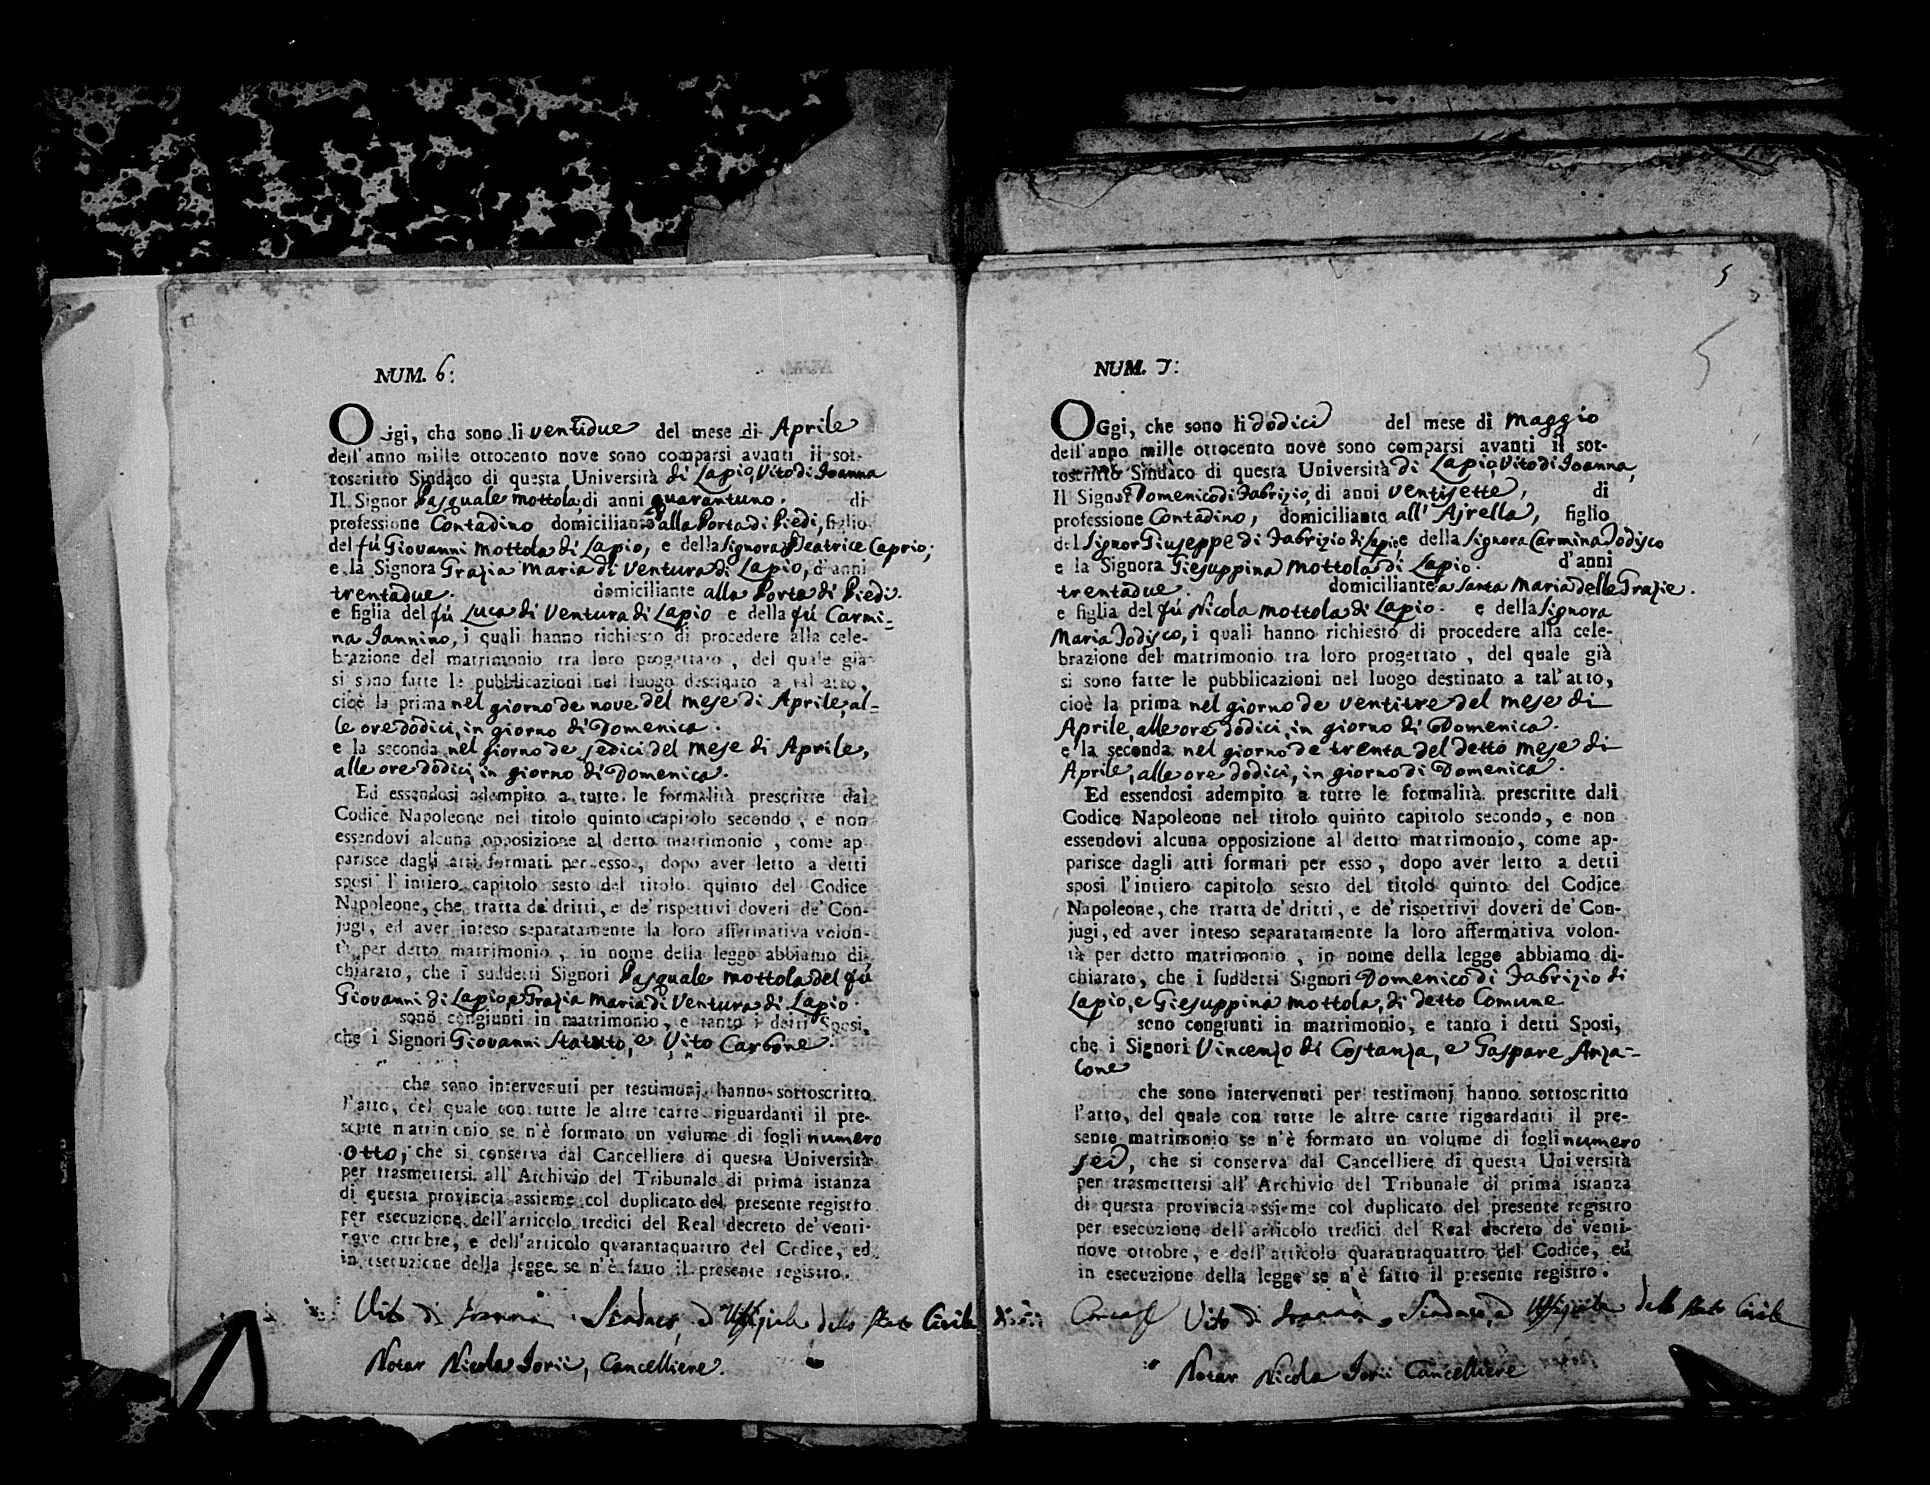 NUM. 6:
Oggi, che sono li ventidue del mese di Aprile
dell'anno mille ottocento nove sono comparsi avanti il sot-
toscritto Sindaco di questa Università di Lapio, Vito di Ioanna
Il Signor Pasquale Mottola, di anni quarantuno. di
professione Contadino domiciliante alla Porta di Piedi, figlio
del fù Giovanni Mottola di Lapio, e della Signora Beatrice Caprio;
e la Signora Grazia Maria di Ventura di Lapio, d'anni
trentadue. domiciliante alla Porta di Piedi.
e figlia del fù Luca di Ventura di Lapio e della fù Carmi-
na Iannino, i quali hanno richiesto di procedere alla cele-
brazione del matrimonio tra loro progettato, del quale già
si sono fatte le pubblicazioni nel luogo destinato a tal atto,
cioè la prima nel giorno de nove del mese di Aprile, al-
le ore dodici, in giorno di Domenica.
e la seconda nel giorno de sedici del mese di Aprile,
alle ore dodici, in giorno di Domenica.
Ed essendosi adempito a tutte le formalità prescritte dal
Codice Napoleone nel titolo quinto capitolo secondo, e non
essendovi alcuna opposizione al detto matrimonio, come ap-
parisce dagli atti formati per esso, dopo aver letto a detti
sposi l'intiero capitolo sesto del titolo quinto del Codice
Napoleone, che tratta de' dritti, e de' rispettivi doveri de' Con-
jugi, ed aver inteso separatamente la loro affermativa volon-
tà per detto matrimonio, in nome della legge abbiamo di-
chiarato, che i suddetti Signori Pasquale Mottola del fù
Giovanni di Lapio, e Grazia Maria di Ventura di Lapio.
sono congiunti in matrimonio, e tanto i detti Sposi,
che i Signori Giovanni Statuto, e Vito Carbone.
che sono intervenuti per testimonj hanno sottoscritto
l'atto, del quale con tutte le altre carte riguardanti il pre-
sente matrimonio se n'è formato un volume di fogli numero
otto, che si conserva dal Cancelliere di questa Università
per trasmettersi all'Archivio del Tribunale di prima istanza
di questa provincia assieme col duplicato del presente registro
per esecuzione dell'articolo tredici del Real decreto de' venti-
nove ottobre, e dell'articolo quarantaquattro del Codice, ed
in esecuzione della legge se n'è fatto il presente registro.
Vito di Ioanna Sindaco, ed Uffiziale dello Stato Civile
Notar Nicola Iorii, Cancelliere.
5
5
NUM. 7:
OGgi, che sono li dodici del mese di Maggio
dell'anno mille ottocento nove sono comparsi avanti il sot-
toscritto Sindaco di questa Università di Lapio, Vito di Ioanna,
Il Signor Domenico di Fabrizio, di anni ventisette, di
professione Contadino, domiciliante all'Ajrella, figlio
del Signor Giuseppe di Fabrizio di Lapio, e della Signora Carmina Iodisco
e la Signora Giesuppina Mottola di Lapio. d'anni
trentadue. domiciliante a Santa Maria delle Grazie.
e figlia del fù Nicola Mottola di Lapio. e della Signora
Maria Iodisco, i quali hanno richiesto di procedere alla cele-
brazione del matrimonio tra loro progettato, del quale già
si sono fatte le pubblicazioni nel luogo destinato a tal'atto,
cioè la prima nel giorno de ventitre del mese di
Aprile, alle ore dodici, in giorno di Domenica.
e la seconda nel giorno de trenta del detto mese di
Aprile, alle ore dodici, in giorno di Domenica.
Ed essendosi adempito a tutte le formalità prescritte dall
Codice Napoleone nel titolo quinto capitolo secondo, e non
essendovi alcuna opposizione al detto matrimonio, come ap-
parisce dagli atti formati per esso, dopo aver letto a detti
sposi l'intiero capitolo sesto del titolo quinto del Codice
Napoleone, che tratta de' dritti, e de' rispettivi doveri de' Con-
jugi, ed aver inteso separatamente la loro affermativa volon-
tà per detto matrimonio, in nome della legge abbiamo di-
chiarato, che i suddetti Signori Domenico di Fabrizio di
Lapio, e Giesuppina Mottola, di detto Comune
sono congiunti in matrimonio, e tanto i detti Sposi,
che i Signori Vincenzo di Costanza, e Gaspare Anza-
cone
che sono intervenuti per testimonj hanno sottoscritto
l'atto, del quale con tutte le altre carte riguardanti il pre-
sente matrimonio se n'è formato un volume di fogli numero
sei, che si conserva dal Cancelliere di questa Università
per trasmettersi all'Archivio del Tribunale di prima istanza
di questa provincia assieme col duplicato del presente registro
per esecuzione dell'articolo tredici del Real decreto de' venti-
nove ottobre, e dell'articolo quarantaquattro del Codice, ed
in esecuzione della legge se n'è fatto il presente registro.
Vito di Ioanna, Sindaco, ed Uffiziale dello Stato Civile
Notar Nicola Iorii Cancelliere